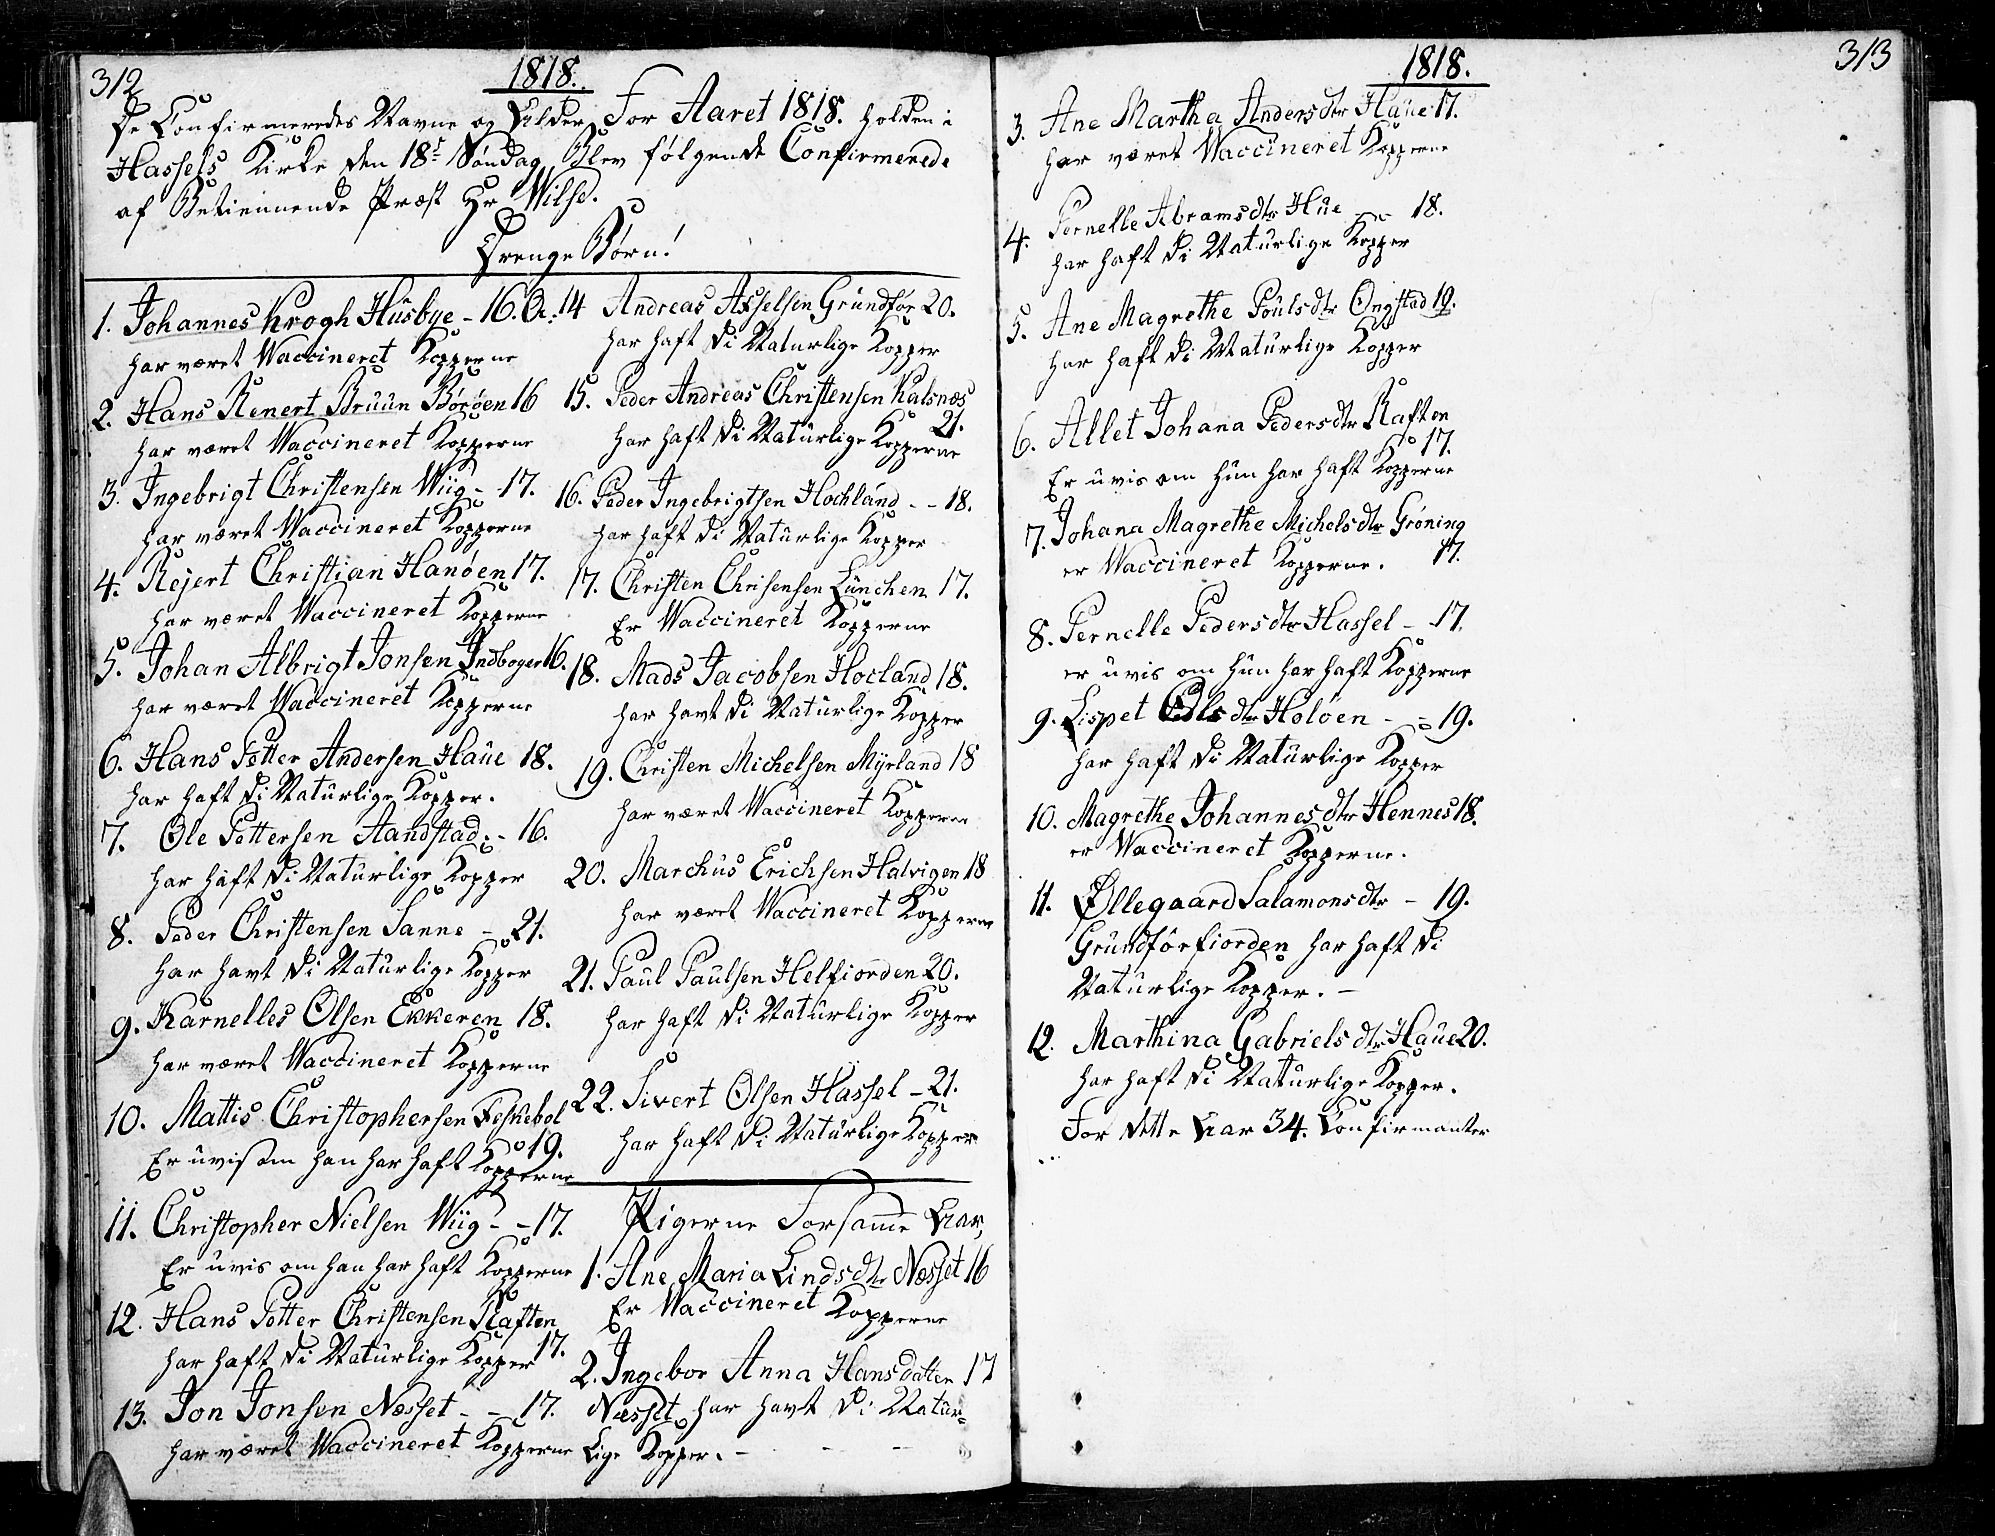 312
1818.
De Confirmeredes Navne og Alder For Aaret 1818. holden i
Hassels Kirke den 18de Søndag, Blev følgende Confirmerede
af Betiennende Præst Hr Wilse.
Drenge Børn!
1. Johannes Krogh Husbye - 16. A:
har været Waccineret Kopperne
2. Hans Renert Bruun Børøen 16
har været Waccineret Kopperne
3. Ingebrigt Christensen Wiig - 17.
har været Waccineret Kopperne
4. Rejert Christian Hanøen 17.
har været Waccineret Kopperne
5. Johan Albrigt Jonsen Indboger 16.
har været Waccineret Kopperne
6. Hans Petter Andersen Haue 18.
har haft di Naturlige Kopper.
7. Ole Pettersen Aandstad - 16.
har haft di Naturlige Kopper
8. Peder Christensen Sanne - 21.
har havt di Naturlige Kopper
9. Karnelles Olsen Ekkeren 18.
har været Waccineret Kopperne
10. Mattis Christophersen Feskebol
19.
Er uvis om han har haft Kopperne
11. Christopher Nielsen Wiig - - 17.
Er uvis om han har haft Kopperne
12. Hans Petter Christensen Raften
17.
har haft di Naturlige Kopper
13. Jon Jonsen Næsset - - 17.
har været Waccineret Kopperne
14 Andreas Asselsen Grundfør 20.
har haft di Naturlige Kopper
15. Peder Andreas Christensen Kalsnæs
21.
har haft di Naturlige Kopperne
16. Peder Ingebrigtsen Hochland - - 18.
har haft di Naturlige Kopper
17. Christen Chrisensen Lünchen 17.
Er Waccineret Kopperne
18. Mads Jacobsen Hocland 18.
har havt di Naturlige Kopper
19. Christen Michelsen Myrland 18
har været Waccineret Kopperne
20. Marchus Erichsen Halvigen 18
har været Waccineret Kopperne
21. Paul Paulsen Helfiorden 20.
har haft di Naturlige Kopper
22. Sivert Olsen Hassel - 21.
har haft di Naturlige Kopper
Pigerne For samme Aar,
1. Ane Maria Lindsdtr Næsset 16
Er Waccineret Kopperne
2. Ingebor Anna Hansdatter 17
Næsset, har havt di Natur=
Lige Kopper. -
313
1818.
3. Ane Martha Andersdtr Haue 17.
har været Waccineret Kopperne
4. Pernelle Abramsdtr Hue - 18.
har haft di Naturlige Kopper
5. Ane Magrethe Poulsdtr Ongstad 19.
har haft di Naturlige Kopper
6. Allet Johana Pedersdtr Raften
17.
Er uvis om hun har haft Kopperne
7. Johana Magrethe Michelsdtr Grøning
er Waccineret Kopperne. 17.
8. Pernelle Pedersdtr Hassel - 17.
er uvis om hun har haft Kopperne
9. Lispet dtr Holøen - - 19.
har haft di Naturlige Kopper
10. Magrethe Johannesdtr Hennes 18.
er Waccineret Kopperne.
11. Øllegaard Salamonsdtr - 19.
Grundførfiorden har haft di
Naturlige Kopper. -
12. Marthina Gabrielsdtr Haue 20.
har haft di Naturlige Kopper.
For dette Aar 34. Confirmanter